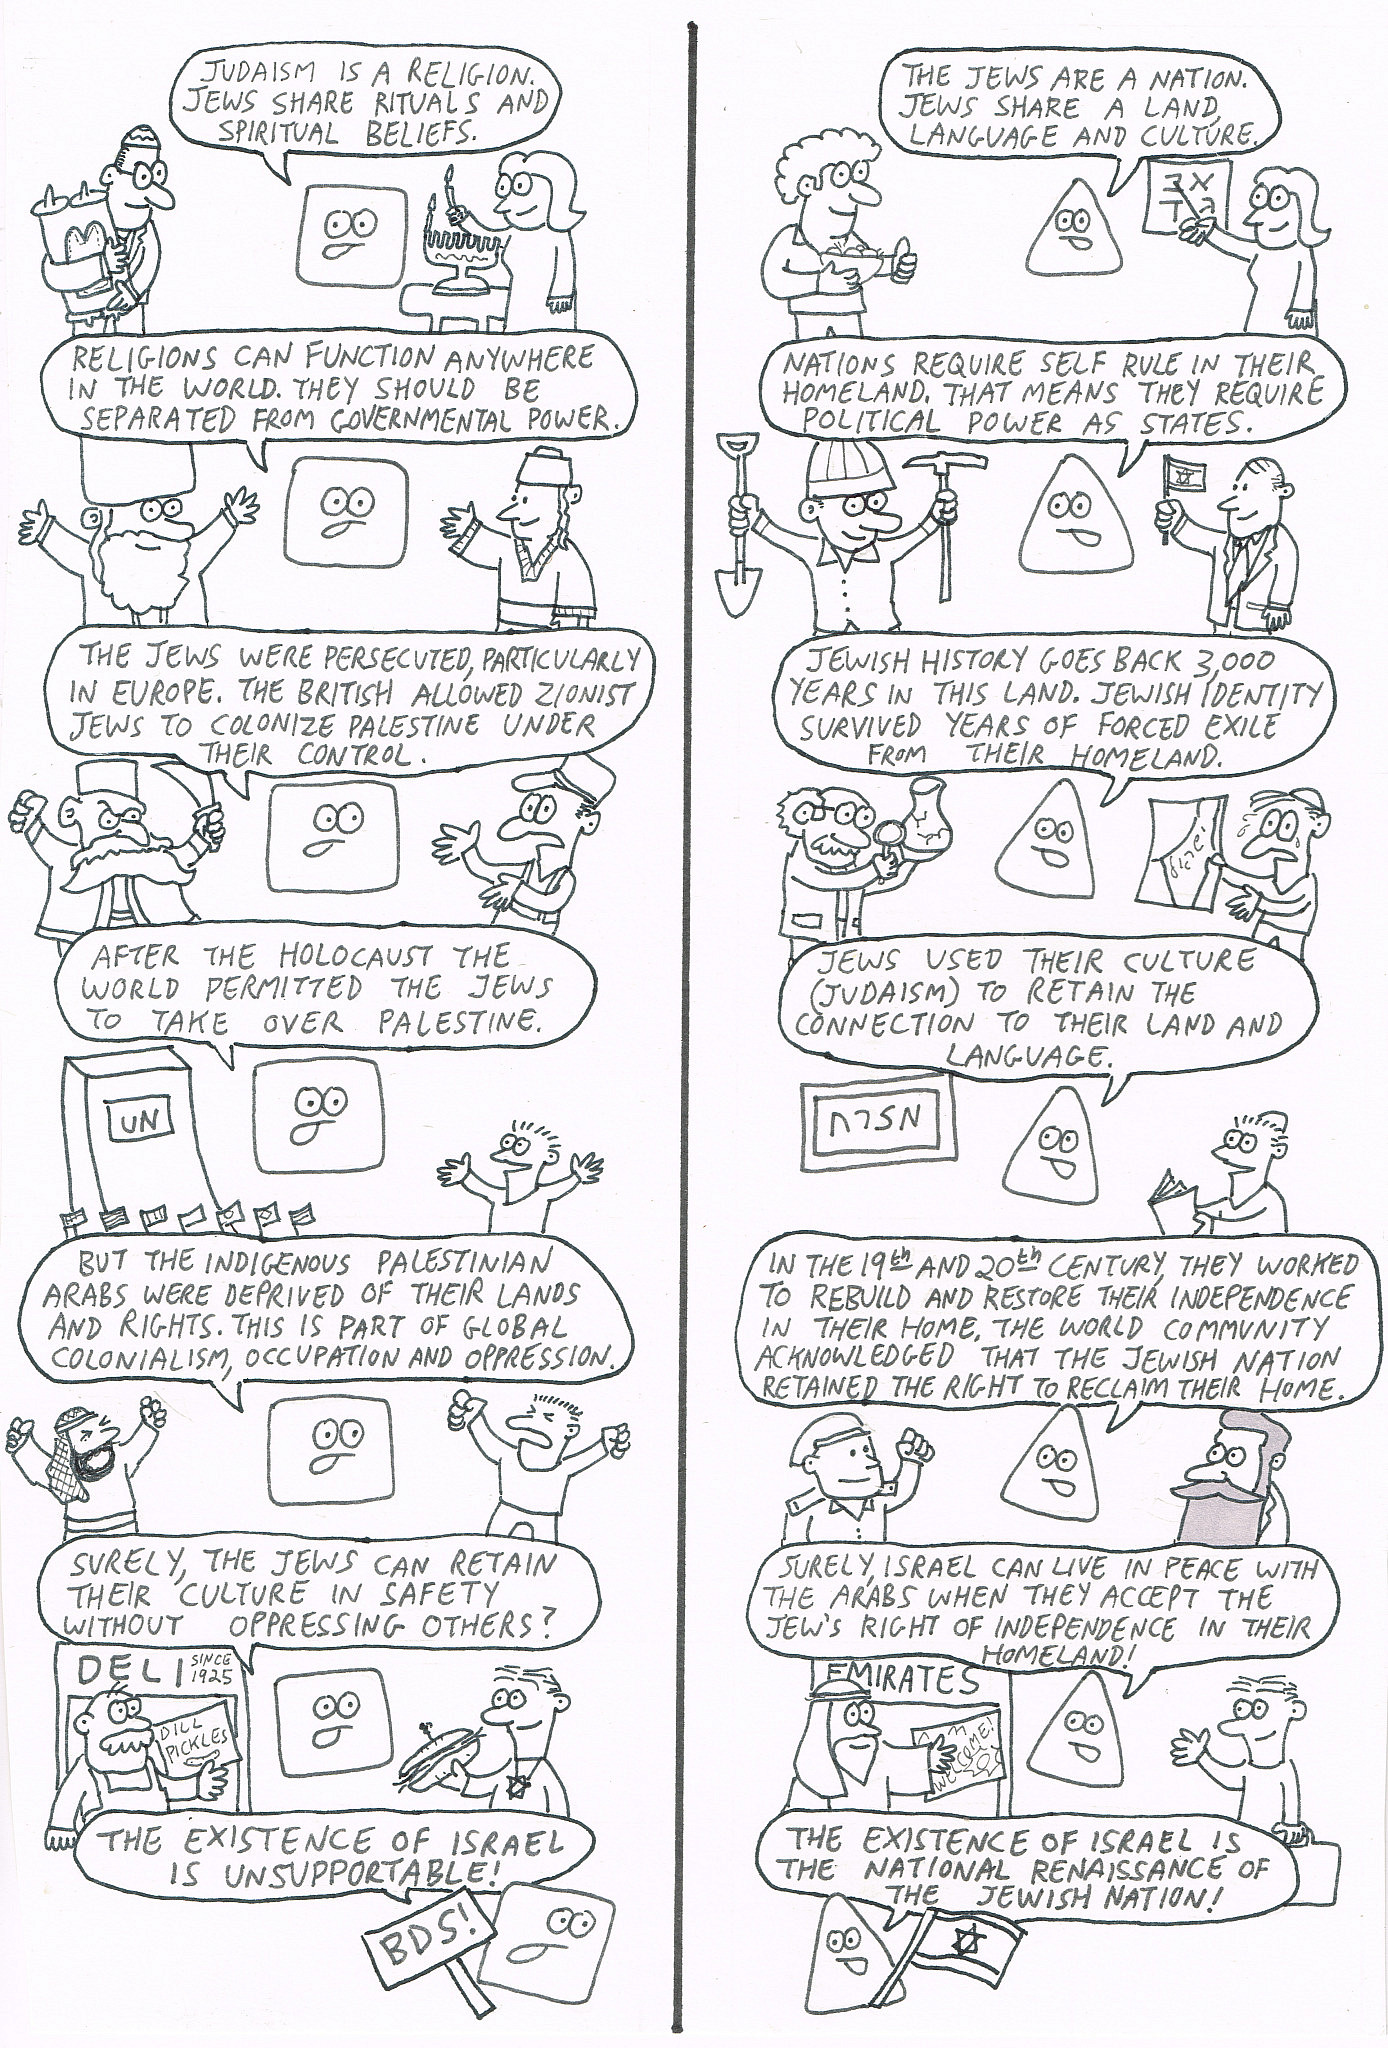 JUDAISM IS A RELIGION.
JEWS SHARE RITUALS AND
SPIRITUAL BELIEFS.
RELIGIONS CAN FUNCTION ANYWHERE
IN THE WORLD. THEY SHOULD BE
SEPARATED FROM GOVERNMENTAL POWER.
THE JEWS WERE PERSECUTED, PARTICULARLY
IN EUROPE. THE BRITISH ALLOWED ZIONIST
JEWS TO COLONIZE PALESTINE UNDER
THEIR CONTROL.
AFTER THE HOLOCAUST THE
WORLD PERMITTED THE JEWS
TO TAKE OVER PALESTINE.
UN
BUT THE INDIGENOUS PALESTINIAN
ARABS WERE DEPRIVED OF THEIR LANDS
AND RIGHTS. THIS IS PART OF GLOBAL
COLONIALISM, OCCUPATION AND OPPRESSION.
SURELY, THE JEWS CAN RETAIN
THEIR CULTURE IN SAFETY
WITHOUT OPPRESSING OTHERS?
DELI SINCE
1925
DILL
PICKLES
THE EXISTENCE OF ISRAEL
IS UNSUPPORTABLE!
BDS!
THE JEWS ARE A NATION.
JEWS SHARE A LAND,
LANGUAGE AND CULTURE.
א ב
ג ד
NATIONS REQUIRE SELF RULE IN THEIR
HOMELAND. THAT MEANS THEY REQUIRE
POLITICAL POWER AS STATES.
JEWISH HISTORY GOES BACK 3,000
YEARS IN THIS LAND. JEWISH IDENTITY
SURVIVED YEARS OF FORCED EXILE
FROM THEIR HOMELAND.
JEWS USED THEIR CULTURE
(JUDAISM) TO RETAIN THE
CONNECTION TO THEIR LAND AND
LANGUAGE.
מזרח
IN THE 19th AND 20th CENTURY, THEY WORKED
TO REBUILD AND RESTORE THEIR INDEPENDENCE
IN THEIR HOME. THE WORLD COMMUNITY
ACKNOWLEDGED THAT THE JEWISH NATION
RETAINED THE RIGHT TO RECLAIM THEIR HOME.
SURELY, ISRAEL CAN LIVE IN PEACE WITH
THE ARABS WHEN THEY ACCEPT THE
JEW'S RIGHT OF INDEPENDENCE IN THEIR
HOMELAND!
EMIRATES
WELCOME!
THE EXISTENCE OF ISRAEL IS
THE NATIONAL RENAISSANCE OF
THE JEWISH NATION!